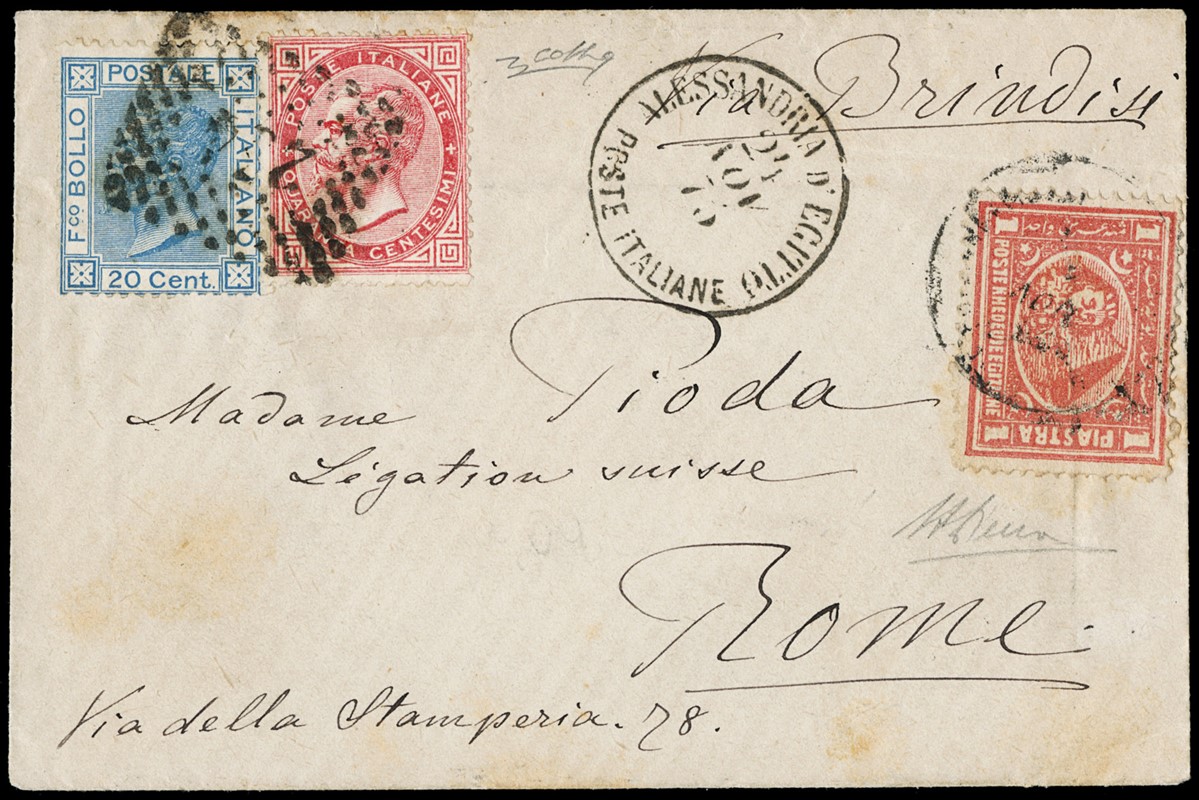 POSTALE
Fco BOLLO
ITALIANO
20 Cent.
POSTE ITALIANE
CENTESIMI
ALESSANDRIA D' EGITTO
24
NOV
75
POSTE ITALIANE
Via Brindisi
1
1
POSTE KHEDEUIE EGIZIANE
1 PIASTRA 1
NOV
Madame Pioda
Légation suisse
Rome.
Via della Stamperia. 78.